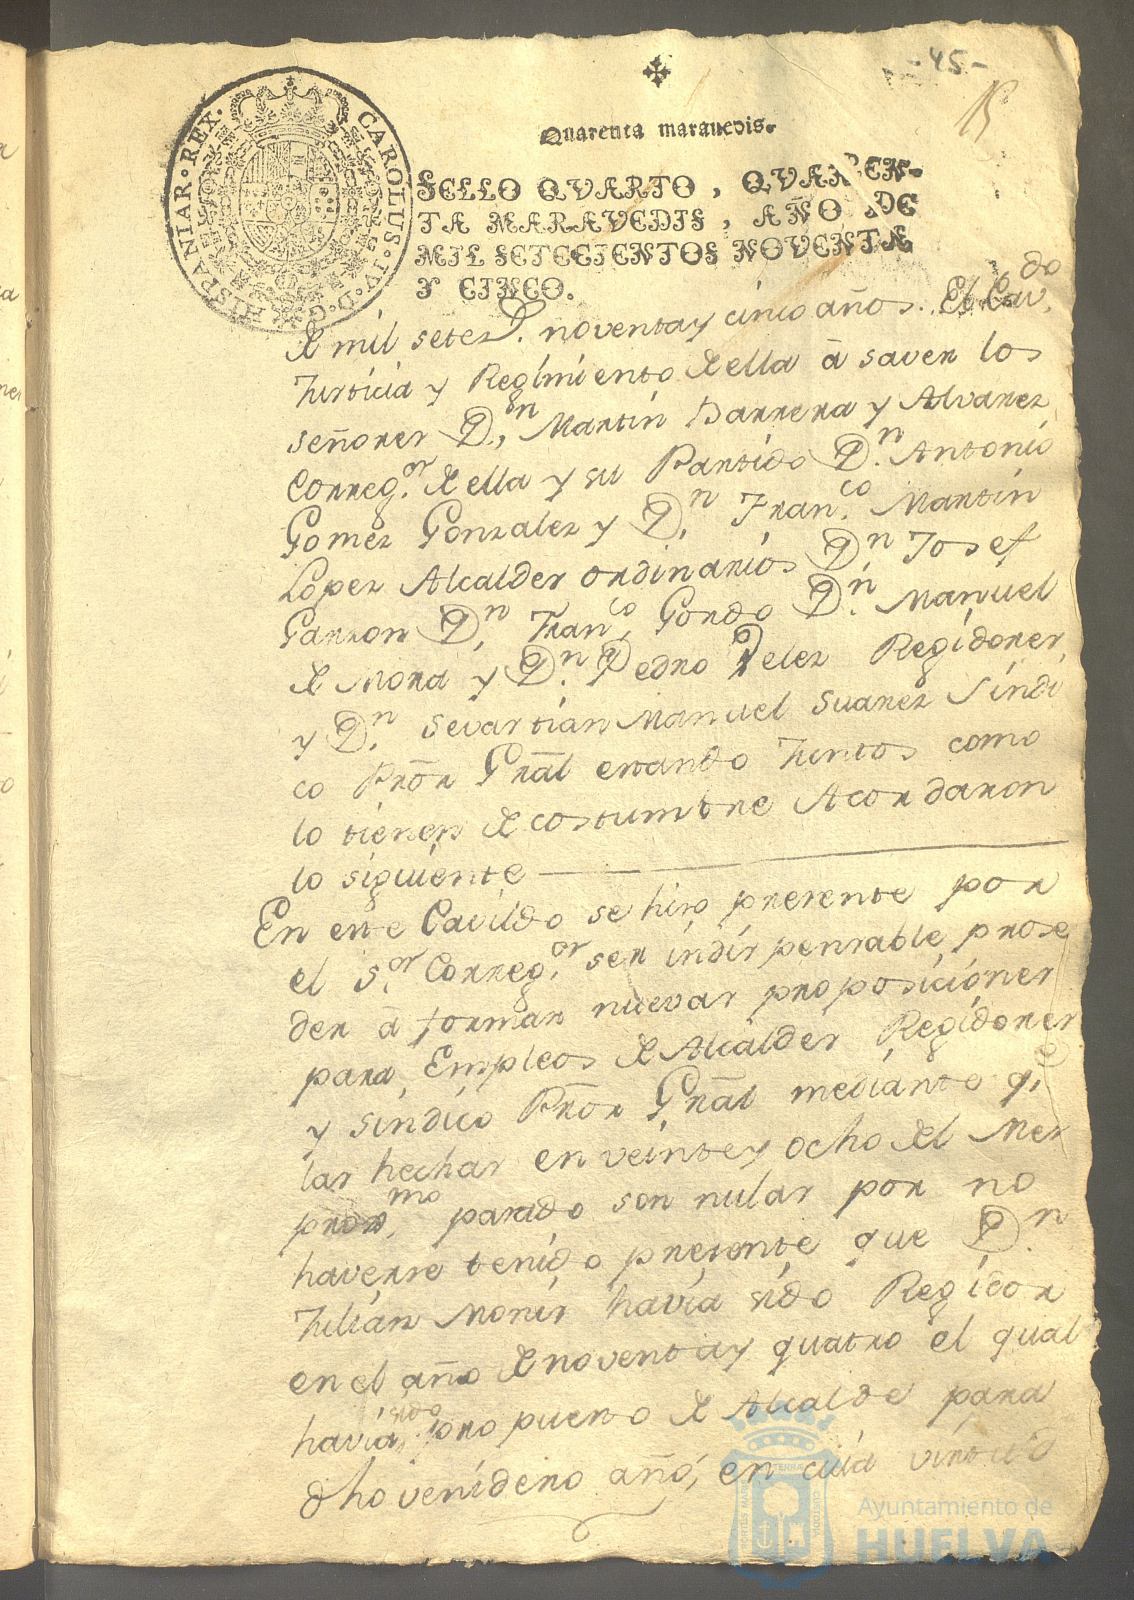 -45-
Quarenta maravedis.
SELLO QVARTO, QVAREN-
TA MARAVEDIS, AÑO DE
MIL SETECIENTOS NOVENTA
Y CINCO.
CAROLUS·IV·D·G·HISPANIAR·REX·
de mil setez.s noventa y cinco años. El Cav.do
Justicia y Regimiento de ella â saver los
señores D.n Martin Barrera y Alvarez
Correg.or de ella y su Partido D.n Antonio
Gomez Gonzalez y D.n Fran.co Martin
Lopez Alcaldes ordinarios D.n Josef
Garzon D.n Fran.co Gordo D.n Manuel
de Mora y D.n Pedro Velez Regidores,
y D.n Sevastian Manuel Suarez Sindi
co Prõr Grãl estando Juntos como
lo tienen de costumbre Acordaron
lo siguiente
En este Cavildo se hizo presente por
el S.or Correg.or ser indispensable, prose
der â formar nuevas proposiciones
para Empleos de Alcaldes Regidores
y sindico Prõr Grãl mediante q.e
las hechas en veinte y ocho del Mes
prox.mo pasado son nulas por no
haverse tenido presente que D.n
Julian Monis havia sido Regidor
en el año de noventa y quatro el qual
havia sido propuesto de Alcalde para
dho venidero año, en cuia virtud
Ayuntamiento de
HUELVA